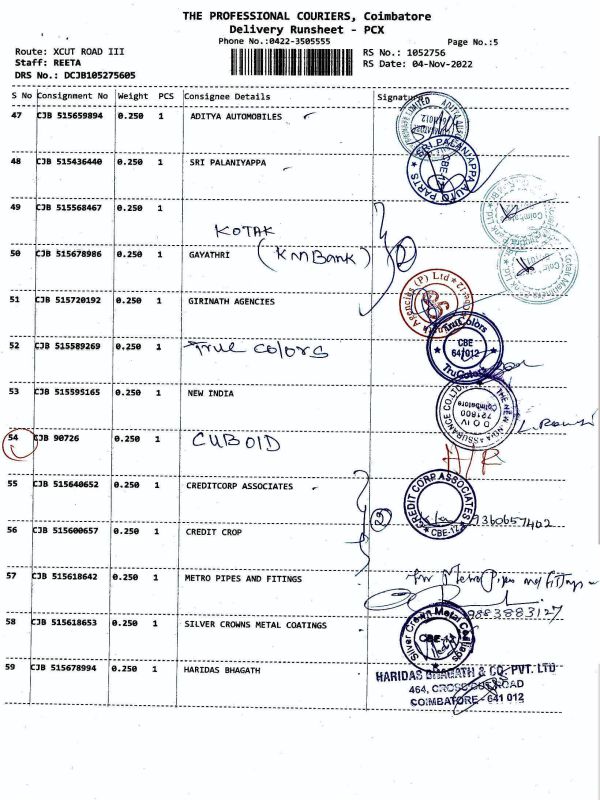 THE PROFESSIONAL COURIERS, Coimbatore
Delivery Runsheet - PCX
Phone No.:0422-3505555 Page No.:5
Route: XCUT ROAD III RS No.: 1052756
Staff: REETA RS Date: 04-Nov-2022
DRS No.: DCJB105275605
S No Consignment No Weight PCS Consignee Details Signature
47 CJB 515659894 0.250 1 ADITYA AUTOMOBILES
48 CJB 515436440 0.250 1 SRI PALANIYAPPA
SRI PALANIYAPPA AUTO PARTS
49 CJB 515568467 0.250 1
KOTAK
50 CJB 515678986 0.250 1 GAYATHRI (KM Bank)
51 CJB 515720192 0.250 1 GIRINATH AGENCIES
Agencies (P) Ltd
52 CJB 515589269 0.250 1 True Colors
TruColors CBE 641012 TruColors
53 CJB 515595165 0.250 1 NEW INDIA
THE NEW INDIA ASSURANCE CO.LTD D O IV 721600 Coimbatore
54 CJB 90726 0.250 1 CUBOID
55 CJB 515640652 0.250 1 CREDITCORP ASSOCIATES
CREDIT CORP ASSOCIATES CBE-12 9360657402
2
56 CJB 515600657 0.250 1 CREDIT CROP
57 CJB 515618642 0.250 1 METRO PIPES AND FITINGS
for Metro Pipes and fittings
9883883127
58 CJB 515618653 0.250 1 SILVER CROWNS METAL COATINGS
Silver Crown Metal Coatings CBE-12
59 CJB 515678994 0.250 1 HARIDAS BHAGATH
HARIDAS BHAGATH & CO. PVT. LTD
464, CROSS CUT ROAD
COIMBATORE - 641 012